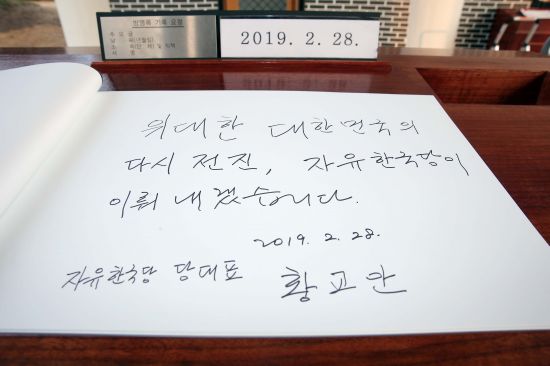 방명록 기록 요령
2019. 2. 28.
위대한 대한민국의
다시 전진, 자유한국당이
이뤄 내겠습니다.
2019. 2. 28.
자유한국당 당대표 황교안